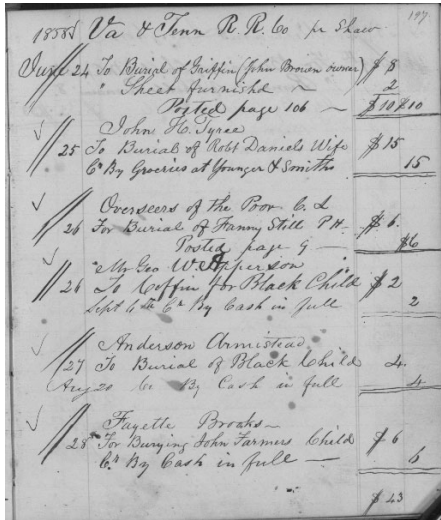 197
1858 Va & Tenn R. R. Co pr Shaw
June 24 To Burial of Griffin (John Brown owner) $8
" Sheet furnishd ~ 2
Posted page 106 ~ $10 $10
John H. Tyree
25 To Burial of Robt Daniels Wife $15
Cr By Groceries at Younger & Smiths 15
Overseers of the Poor C. L
26 For Burial of Fanny Still P H. $6.
Posted page 9 — $6
Mr Geo W Apperson
26 To Coffin for Black Child $2
Sept 6th Cr By Cash in full 2
Anderson Armistead
27 To Burial of Black Child 4.
Aug 20 Cr By Cash in full 4
Fayette Brooks —
28 For Burying John Farmers Child $6
Cr By Cash in full — 6
$43